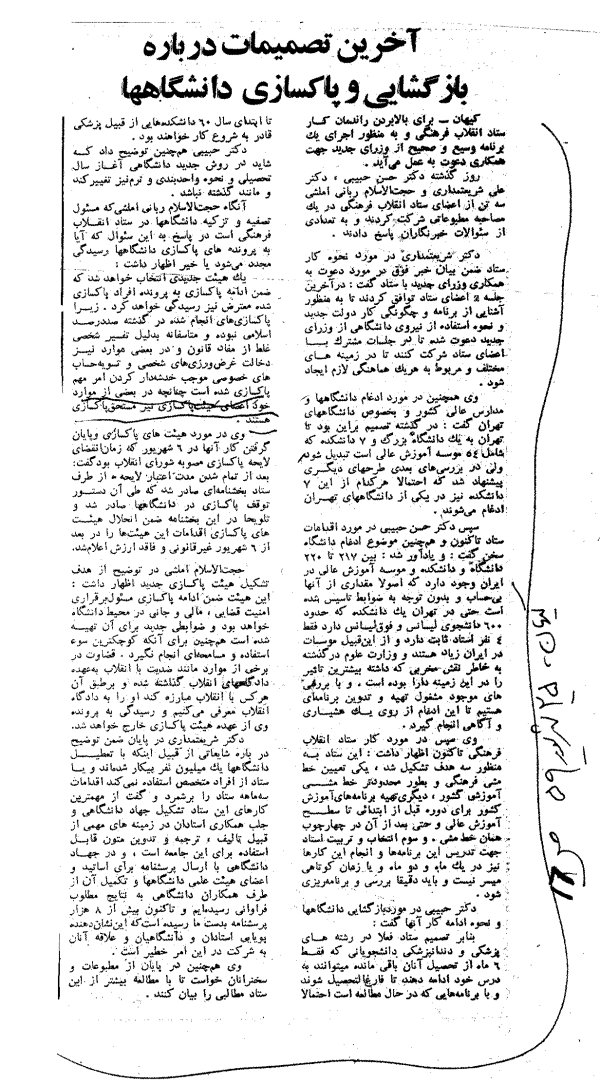 آخرین تصمیمات درباره
بازگشایی و پاکسازی دانشگاهها
کیهان ــ برای بالابردن راندمان کار
ستاد انقلاب فرهنگی و به منظور اجرای یك
برنامه وسیع و صحیح از وزرای جدید جهت
همکاری دعوت به عمل می‌آید .
روز گذشته دکتر حسن حبیبی ، دکتر
علی شریعتمداری و حجت‌الاسلام ربانی املشی
سه تن از اعضای ستاد انقلاب فرهنگی در یك
مصاحبه مطبوعاتی شرکت کردند و به تعدادی
از سئوالات خبرنگاران پاسخ دادند .
دکتر شریعتمداری در مورد نحوه کار
ستاد ضمن بیان خبر فوق در مورد دعوت به
همکاری وزرای جدید با ستاد گفت : درآخرین
جلسه ٤ اعضای ستاد توافق کردند تا به منظور
آشنایی از برنامه و چگونگی کار دولت جدید
و نحوه استفاده از نیروی دانشگاهی از وزرای
جدید دعوت شده تا در جلسات مشترك بـا
اعضای ستاد شرکت کنند تا در زمینه های
مختلف و مربوط به هریك هماهنگی لازم ایجاد
شود .
وی همچنین در مورد ادغام دانشگاهها و
مدارس عالی کشور و بخصوص دانشگاههای
تهران گفت : در گذشته تصمیم براین بود تا
تهران به یك دانشگاه بزرگ و ٧ دانشکده که
شامل ٥٤ موسسه آموزش عالی است تبدیل شود
ولی در بررسی‌های بعدی طرحهای دیگـری
پیشنهاد شد که احتمالا هرکدام از این ٧
دانشکده نیز در یکی از دانشگاههای تهـران
ادغام می‌شوند .
سپس دکتر حسن حبیبی در مورد اقدامات
ستاد تاکنون و همچنین موضوع ادغام دانشگاه
سخن گفت : و یادآور شد : بین ٢١٧ تا ٢٢٠
دانشگاه و دانشکده و موسسه آموزش عالی در
ایران وجود دارد که اصولا مقداری از آنها
بی‌حساب و بدون توجه به ضوابط تاسیس شده
است حتی در تهران یك دانشکده که حدود
٦٠٠ دانشجوی لیسانس و فوق‌لیسانس دارد فقط
٤ نفر استاد ثابت دارد و از این‌قبیل موسسات
در ایران زیاد هستند و وزارت علوم درگذشته
به خاطر نقش مخربی که داشته بیشترین تاثیر
را در این زمینه دارا بوده است . و با بررسی
های موجود مشغول تهیه و تدوین برنامه‌ای
هستیم تا این ادغام از روی یـك هشیاری
و آگاهی انجام گیرد .
وی سپس در مورد کار ستاد انقلاب
فرهنگی تاکنون اظهار داشت : این ستاد بـه
منظور سه هدف تشکیل شد ، یکی تعیین خط
مشی فرهنگی و بطور محدودتر خط مشـی
آموزشی کشور ، دیگری تهیه برنامه‌های‌آموزش
کشور برای دوره قبل از ابتدائی تا سطـح
آموزش عالی و حتی بعد از آن در چهارچوب
همان خط‌مشی . و سوم انتخاب و تربیت استاد
جهت تدریس این برنامه‌ها و انجام این کارها
نیز در یك ماه و دو ماه و یا زمان کوتاهی
میسر نیست و باید دقیقا بررسی و برنامه‌ریزی
شود .
دکتر حبیبی در مورد بازگشایی دانشگاهها
و نحوه ادامه کار آنها گفت :
بنابر تصمیم ستاد فعلا در رشته های
پزشکی و دندانپزشکی دانشجویانی که فقـط
٦ ماه از تحصیل آنان باقی مانده میتوانند به
درس خود ادامه دهند تا فارغ‌التحصیل شوند
و با برنامه‌هایی که در حال مطالعه است احتمالا
تا ابتدای سال ٦٠ دانشکده‌هایی از قبیل پزشکی
قادر به شروع کار خواهند بود .
دکتر حبیبی هم‌چنین توضیح داد کـه
شاید در روش جدید دانشگاهی آغاز سال
تحصیلی و نحوه واحدبندی و ترم نیز تغییر کند
و مانند گذشته نباشد .
آنگاه حجت‌الاسلام ربانی املشی که مسئول
تصفیه و تزکیه دانشگاهها در ستاد انقـلاب
فرهنگی است در پاسخ به این سئوال که آیا
به پرونده های پاکسازی دانشگاهها رسیدگی
مجدد می‌شود یا خیر اظهار داشت :
یك هیئت جدیدی انتخاب خواهد شد که
ضمن ادامه پاکسازی به پرونده افراد پاکسازی
شده معترض نیز رسیدگی خواهد کرد . زیـرا
پاکسازی‌های انجام شده در گذشته صددرصد
اسلامی نبوده و متاسفانه بدلیل تفسیر شخصی
غلط از مفاد قانون و در بعضی موارد نیـز
دخالت غرض‌ورزی‌های شخصی و تسویه‌حساب
های خصوصی موجب خدشه‌دار کردن امر مهم
پاکسازی شده است چنانچه در بعضی از موارد
خود اعضای هیئت پاکسازی نیز مستحق‌پاکسازی
هستند .
وی در مورد هیئت های پاکسازی و پایان
گرفتن کار آنها در ٦ شهریور که زمان انقضای
لایحه پاکسازی مصوبه شورای انقلاب بودگفت:
بعد از تمام شدن مدت اعتبار لایحه ، از طرف
ستاد بخشنامه‌ای صادر شد که طی آن دستـور
توقف پاکسازی در دانشگاهها صادر شد و
تلویحا در این بخشنامه ضمن انحلال هیئـت
های پاکسازی اقدامات این هیئت‌ها را در بعد
از ٦ شهریور غیرقانونی و فاقد ارزش اعلام‌شد.
حجت‌الاسلام املشی در توضیح از هدف
تشکیل هیئت پاکسازی جدید اظهار داشت :
این هیئت ضمن ادامه پاکسازی مسئول‌برقراری
امنیت قضایی ، مالی و جانی در محیط دانشگاه
خواهد بود و ضوابطی جدید برای آن تهیـه
شده است همچنین برای آنکه کوچکترین سوء
استفاده و مسامحه‌ای انجام نگیرد . قضاوت در
برخی از موارد مانند ضدیت با انقلاب به‌عهده
دادگاههای انقلاب گذاشته شده و برطبق آن
هرکس با انقلاب مبارزه کند او را به دادگاه
انقلاب معرفی می‌کنیم و رسیدگی به پرونده
وی از عهده هیئت پاکسازی خارج خواهد شد.
دکتر شریعتمداری در پایان ضمن توضیح
در باره شایعاتی از قبیل اینکه با تعطیـل
دانشگاهها یك میلیون نفر بیکار شده‌اند و یا
ستاد از افراد متخصص استفاده نمی‌کند اقدامات
سه‌ماهه ستاد را برشمرد و گفت از مهمترین
کارهای این ستاد تشکیل جهاد دانشگاهی و
جلب همکاری استادان در زمینه های مهمی از
قبیل تالیف ، ترجمه و تدوین متون قابـل
استفاده برای این جامعه است ، و در جهـاد
دانشگاهی با ارسال پرسشنامه برای اساتید و
اعضای هیئت علمی دانشگاهها و تکمیل آن از
طرف همکاران دانشگاهی به نتایج مطلوب
فراوانی رسیده‌ایم و تاکنون بیش از ٨ هزار
پرسشنامه بدست ما رسیده است‌که این‌نشان‌دهنده
پویایی استادان و دانشگاهیان و علاقه آنان
به شرکت در این امر خطیر است .
وی هم‌چنین در پایان از مطبوعات و
سخنرانان خواست تا با مطالعه بیشتر از این
ستاد مطالبی را بیان کنند .